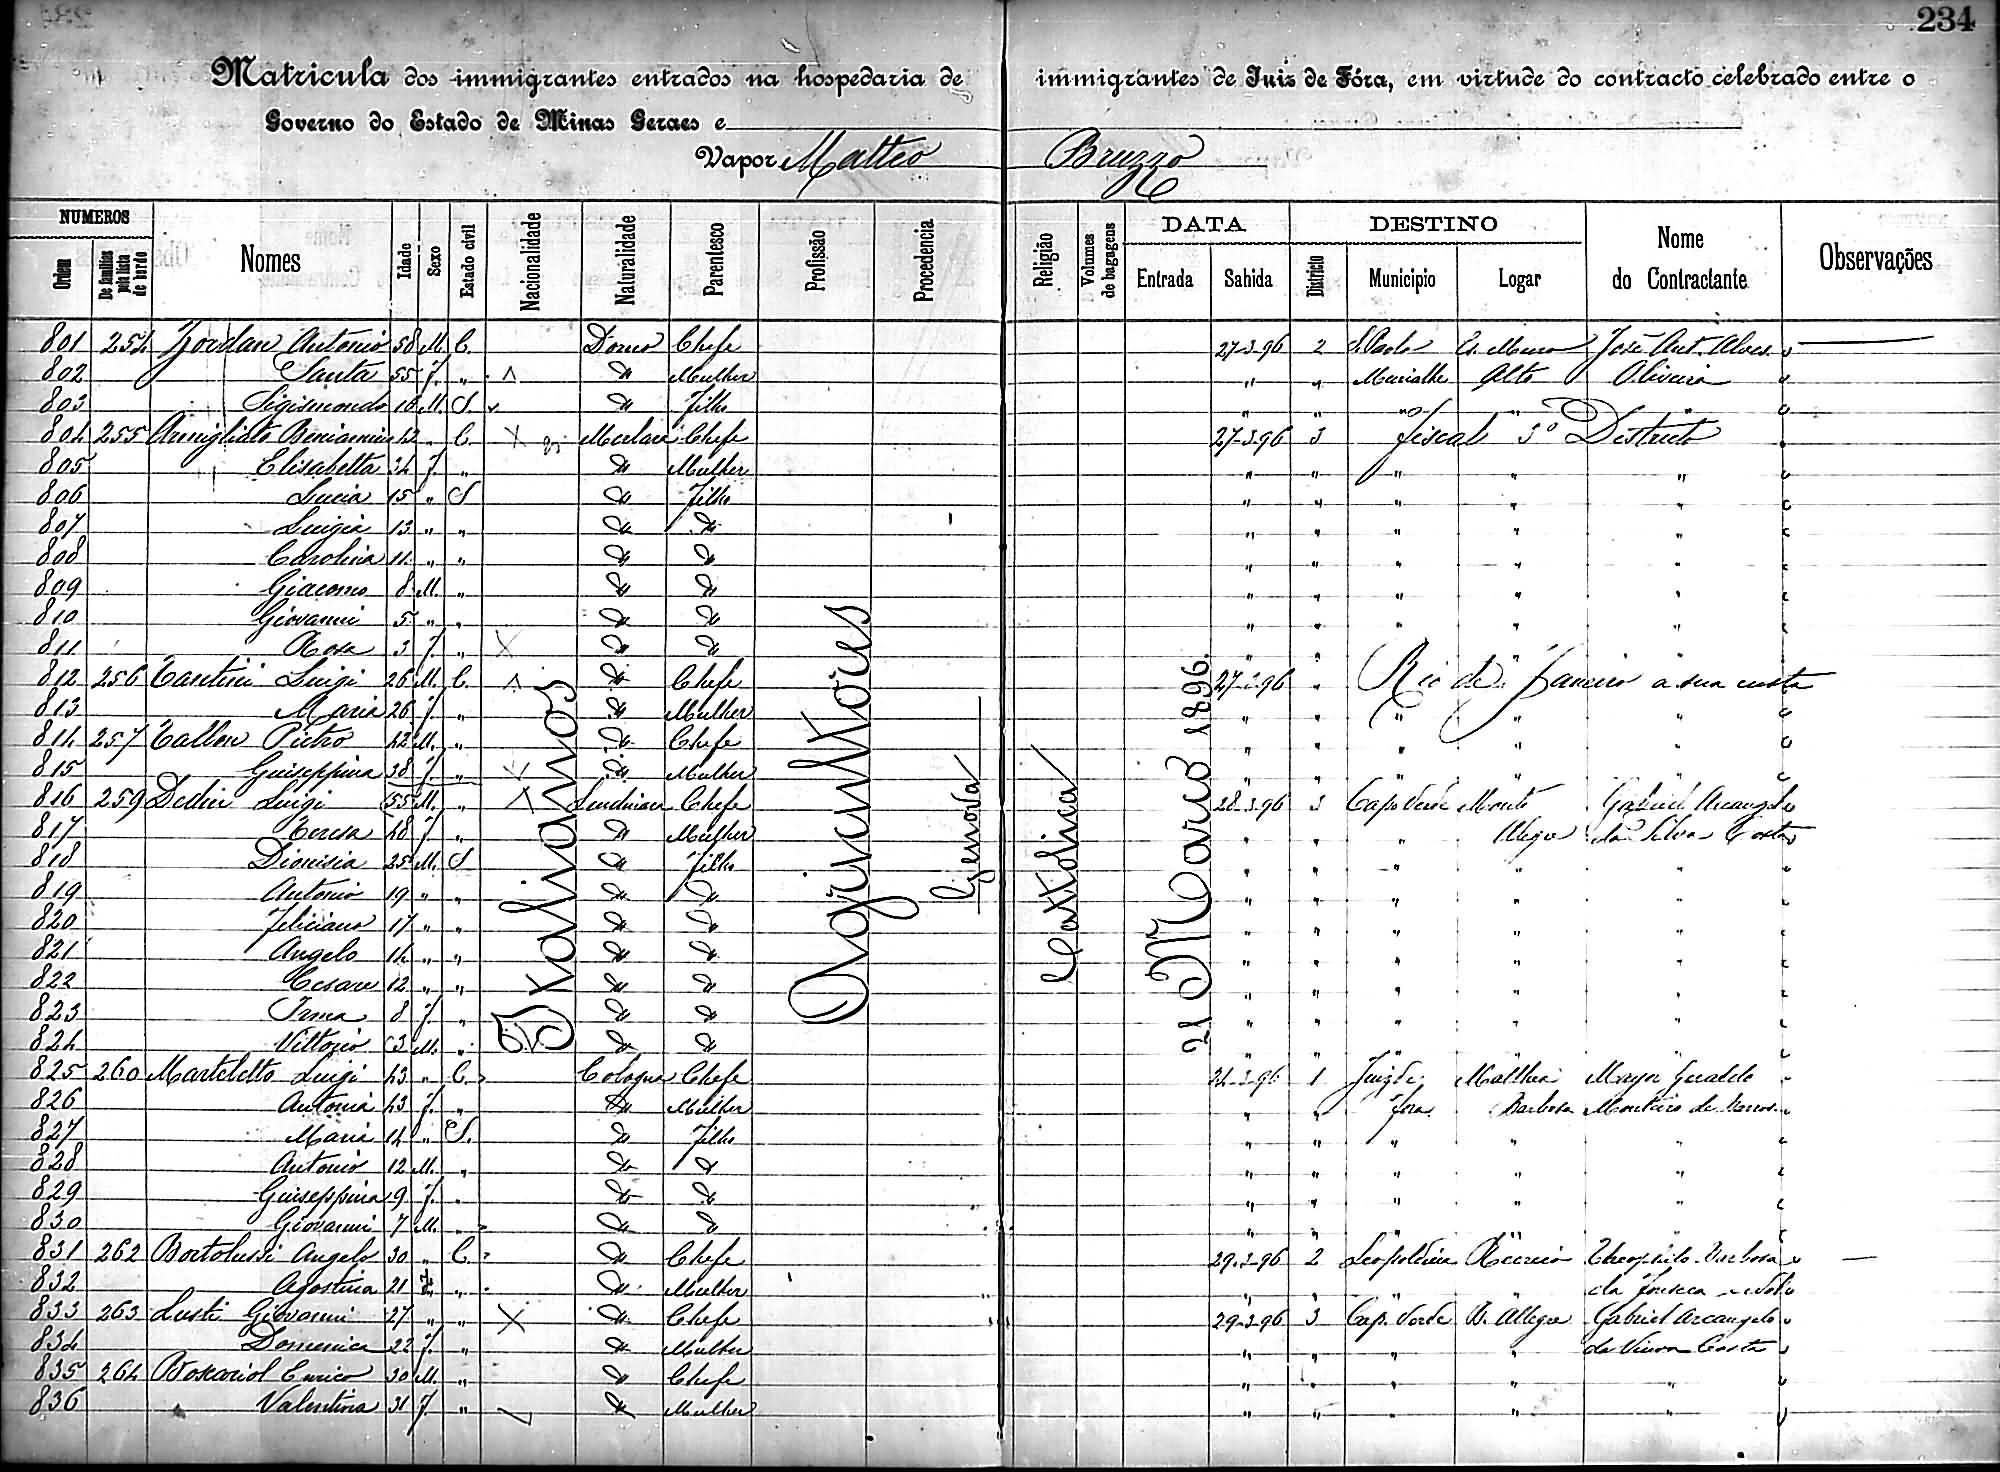 234
Matricula dos immigrantes entrados na hospedaria de immigrantes de Juiz de Fóra, em virtude do contracto celebrado entre o
Governo do Estado de Minas Geraes e
Vapor Matteo Bruzzo
NUMEROS Ordem De familias pela lista de bordo Nomes Idade Sexo Estado civil Nacionalidade Naturalidade Parentesco Profissão Procedencia Religião Volumes de bagagens DATA Entrada Sahida DESTINO Districto Municipio Logar Nome do Contractante Observações
Italianos
Agricultores
Genova
Catholica
21 Março 1896.
801 254 Zordan Antonio 58 M. C. Chefe 27-3-96 2 S. Paolo José Ant. Alves
802 Santa 55 f. " " Mulher " " Muriahe Alto Oliveira
803 Sigismondo 16 M. S. " Filho " " " " "
804 255 Beniamin 42 " C. Chefe 27-3-96 3 fiscal 3º Districto
805 Elisabetta 34 f. " " Mulher " " " " "
806 Lucia 15 " S " Filho " " " " "
807 Luigia 13 " " " " " " " " "
808 Carolina 11 " " " " " " " " "
809 Giacomo 8 M. " " " " " " " "
810 Giovanni 5 " " " " " " " " "
811 Rosa 3 f. " " " " " "
812 256 Luigi 26 M. C. " Chefe 27-3-96 " Rio de Janeiro a sua custa
813 Maria 26 f. " " Mulher " " " " "
814 257 Tallon Pietro 42 M. " " Chefe " " " " "
815 Guiseppina 38 f. " " Mulher " " " " "
816 259 Luigi 55 M. " Chefe 28-3-96 3 Capo Verde Monte Gabriel Arcangelo
817 Teresa 48 f. " " Mulher " " " Alegre da Silva Costa
818 Dionisia 25 M. S " Filho " " " " "
819 Antonio 19 " " " " " " " " "
820 Feliciano 17 " " " " " " " " "
821 Angelo 14 " " " " " " " " "
822 Cesare 12 " " " " " " " " "
823 Irma 8 f. " " " " " " " "
824 Vittorio 3 M. " " " " " " " "
825 260 Marteletto Luigi 43 " C. Cologna Chefe 24-3-96 1 Juiz de Mathias Major Geraldo
826 Antonia 43 f. " " Mulher " " fora Barbosa Monteiro de Barros
827 Maria 14 " S. " Filho " " " " "
828 Antonio 12 M. " " " " " " " "
829 Guiseppina 9 f. " " " " " " " "
830 Giovanni 7 M. " " " " " " " "
831 262 Bortolussi Angelo 30 " C. " Chefe 29-3-96 2 Leopoldina Recreio Theophilo Barbosa
832 Agostina 21 f. " " Mulher " " " " da Fonseca
833 263 Lusti Giovanni 27 " " " Chefe 29-3-96 3 Cap. Verde M. Allegre Gabriel Arcangelo
834 Domenica 22 f. " " Mulher " " " " Costa
835 264 Boscariol Enrico 30 M. " " Chefe " " " " "
836 Valentina 31 f. " " Mulher " " " " "